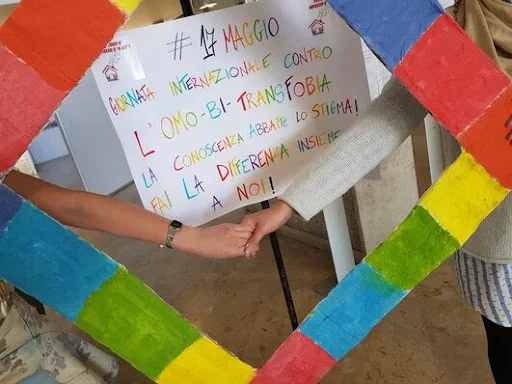 # 17 MAGGIO
GIORNATA INTERNAZIONALE CONTRO
L'OMO-BI-TRANSFOBIA
LA CONOSCENZA ABBATTE LO STIGMA!
FAI LA DIFFERENZA INSIEME
A NOI!